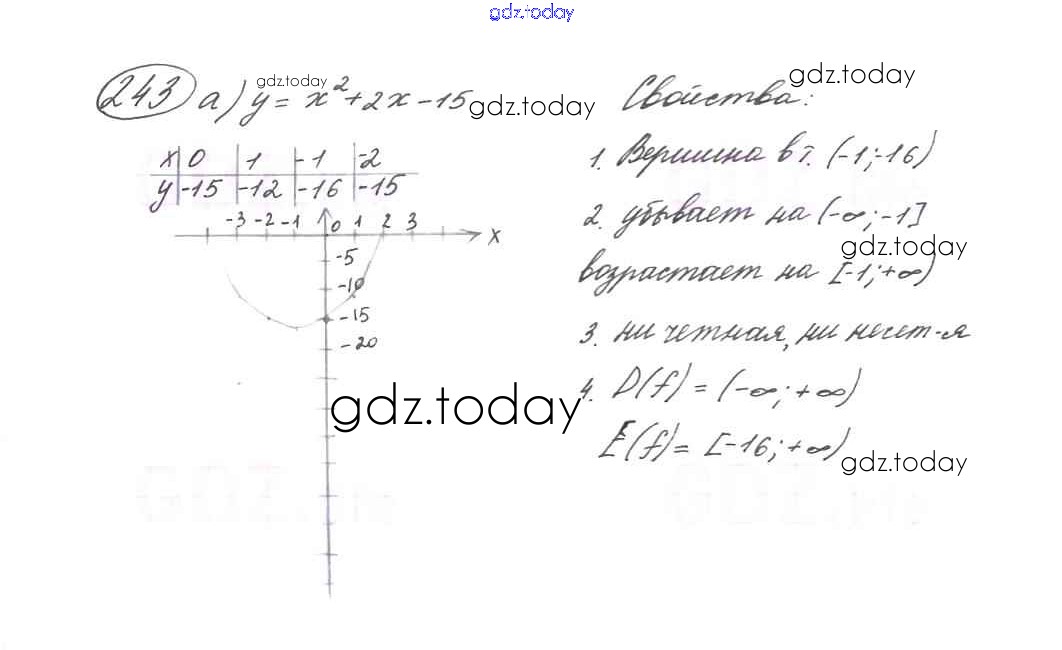 gdz.today
243 а) y = x² + 2x - 15
gdz.today
gdz.today
x | 0 | 1 | -1 | -2
y | -15 | -12 | -16 | -15
-3 -2 -1 0 1 2 3 x
-5
-10
-15
-20
gdz.today
Свойства:
gdz.today
1. Вершина в т. (-1; -16)
2. убывает на (-∞; -1]
gdz.today
возрастает на [-1; +∞)
3. ни четная, ни нечет-я
4. D(f) = (-∞; +∞)
E(f) = [-16; +∞)
gdz.today